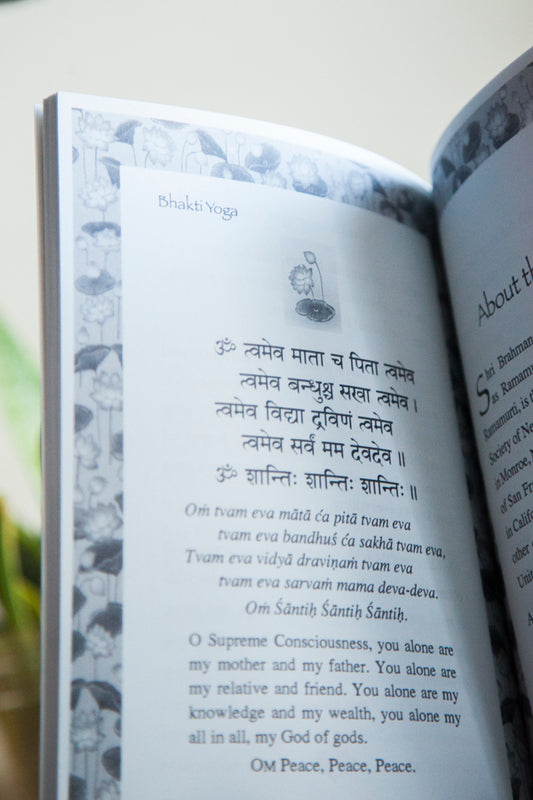 Bhakti Yoga
ॐ त्वमेव माता च पिता त्वमेव
त्वमेव बन्धुश्च सखा त्वमेव ।
त्वमेव विद्या द्रविणं त्वमेव
त्वमेव सर्वं मम देवदेव ॥
ॐ शान्तिः शान्तिः शान्तिः ॥
Oṁ tvam eva mātā ća pitā tvam eva
tvam eva bandhuś ća sakhā tvam eva,
Tvam eva vidyā draviṇaṁ tvam eva
tvam eva sarvaṁ mama deva-deva.
Oṁ Śāntiḥ Śāntiḥ Śāntiḥ.
O Supreme Consciousness, you alone are
my mother and my father. You alone are
my relative and friend. You alone are my
knowledge and my wealth, you alone my
all in all, my God of gods.
OM Peace, Peace, Peace.
About
Shri Brahman
as Ramamu
Ramamurti, is
Society of Ne
in Monroe,
of San Fr
in Califo
other
Unit